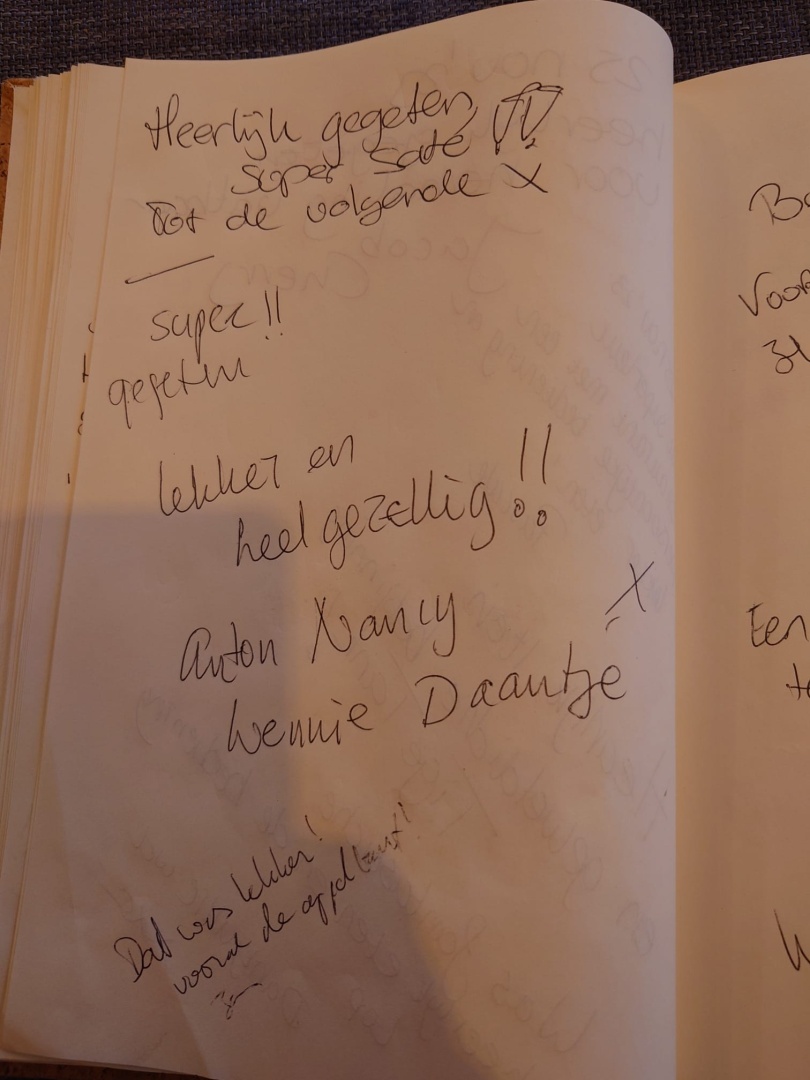 Heerlijk gegeten,
super saté !!
Tot de volgende X
super!!
gegeten
lekker en
heel gezellig!!
Anton Nancy X
Wennie Daantje
Dat was lekker!
vooral de appeltaart!
Voor
Een